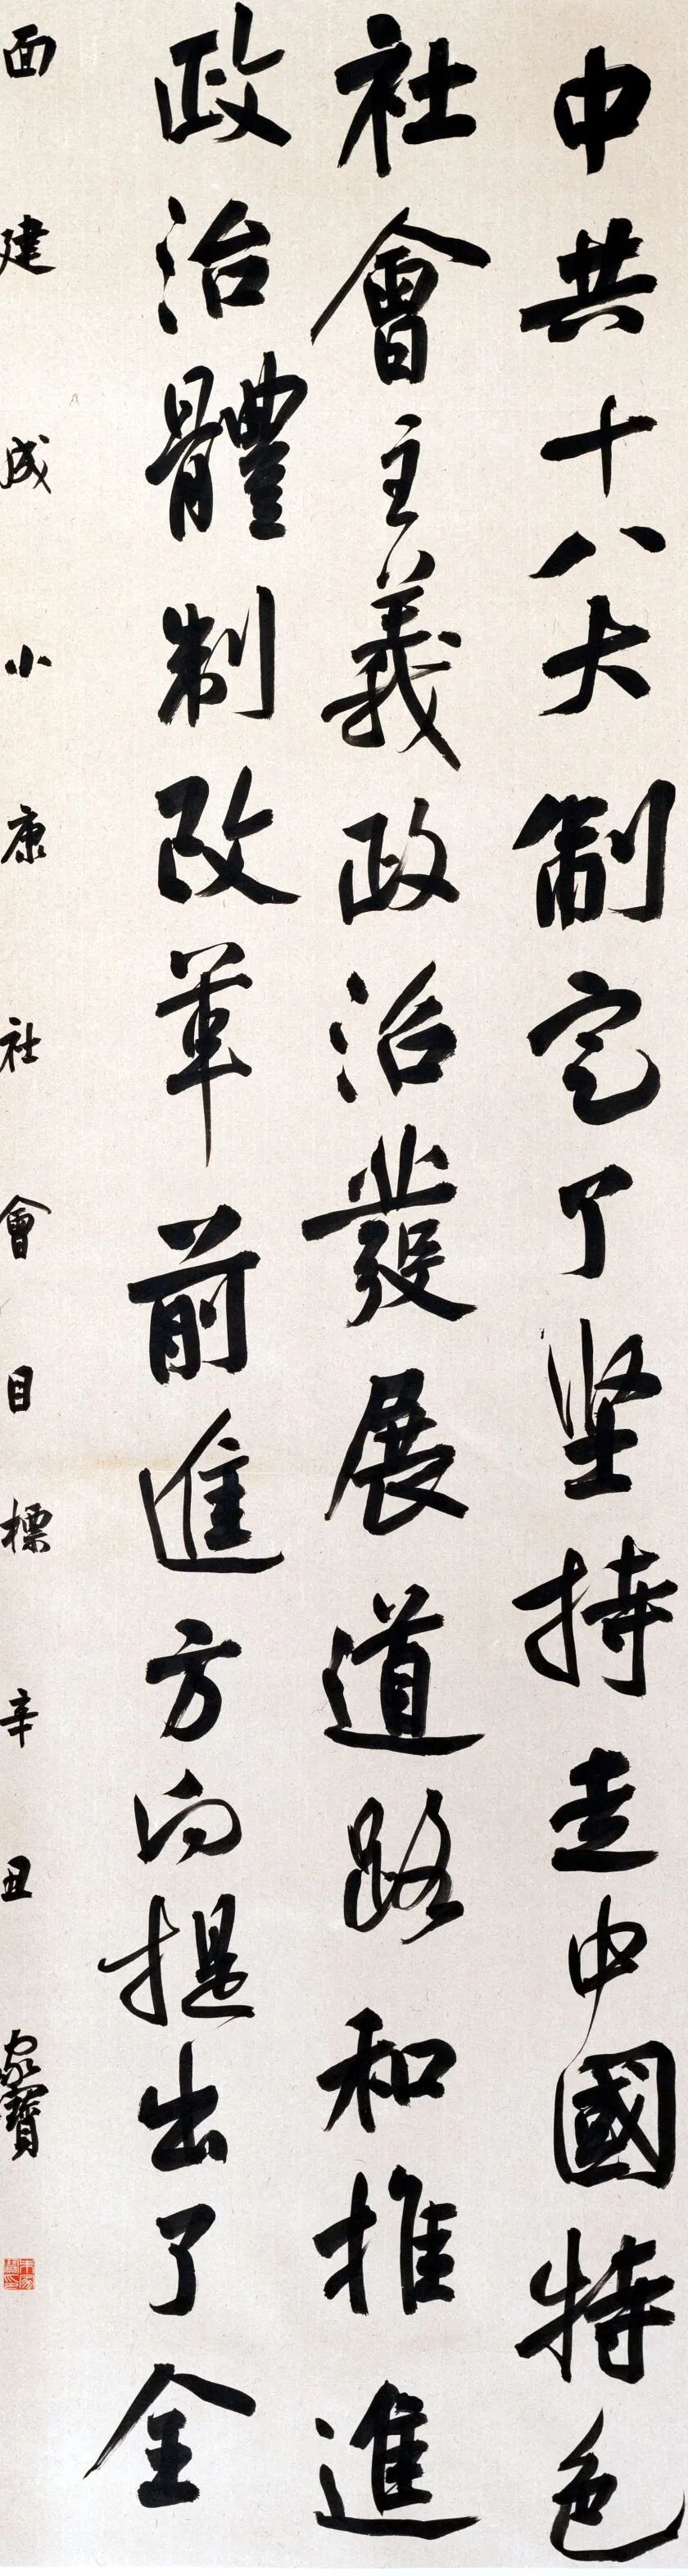 中共十八大制定了坚持走中國特色
社會主義政治發展道路和推進
政治體制改革前進方向提出了全
面建成小康社會目標辛丑家寶